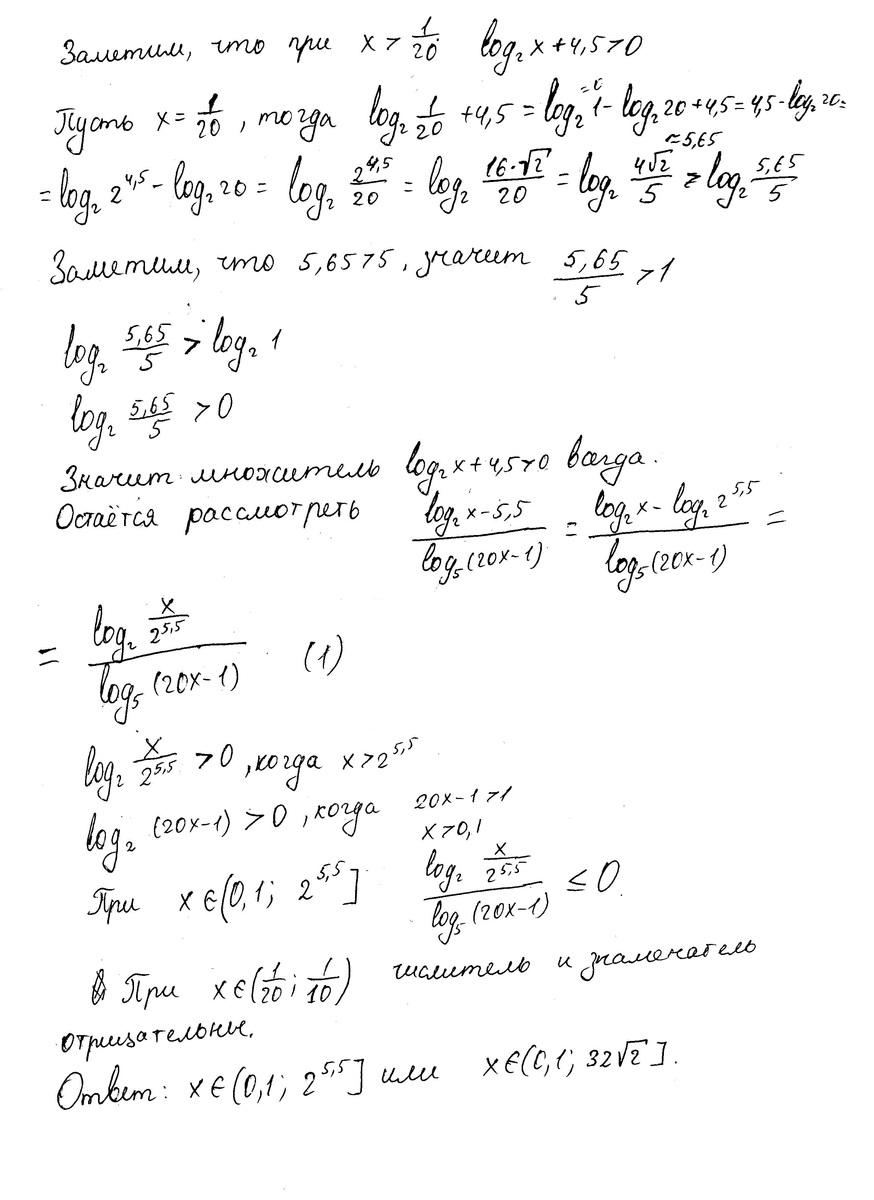 Заметим, что при x > 1/20 log₂ x + 4,5 > 0
Пусть x = 1/20, тогда log₂ 1/20 + 4,5 = log₂ 1 (= 0) - log₂ 20 + 4,5 = 4,5 - log₂ 20 =
= log₂ 2^4,5 - log₂ 20 = log₂ 2^4,5/20 = log₂ 16·√2/20 = log₂ 4√2/5 (≈ 5,65) ≥ log₂ 5,65/5
Заметим, что 5,65 > 5, значит 5,65/5 > 1
log₂ 5,65/5 > log₂ 1
log₂ 5,65/5 > 0
Значит множитель log₂ x + 4,5 > 0 всегда.
Остаётся рассмотреть (log₂ x - 5,5)/(log₅ (20x - 1)) = (log₂ x - log₂ 2^5,5)/(log₅ (20x - 1)) =
= (log₂ x/2^5,5)/(log₅ (20x - 1)) (1)
log₂ x/2^5,5 > 0, когда x > 2^5,5
log₂ (20x-1) > 0, когда 20x - 1 > 1
x > 0,1
При x ∈ (0,1; 2^5,5] (log₂ x/2^5,5)/(log₅ (20x-1)) ≤ 0.
При x ∈ (1/20; 1/10) числитель и знаменатель
отрицательные.
Ответ: x ∈ (0,1; 2^5,5] или x ∈ (0,1; 32√2].